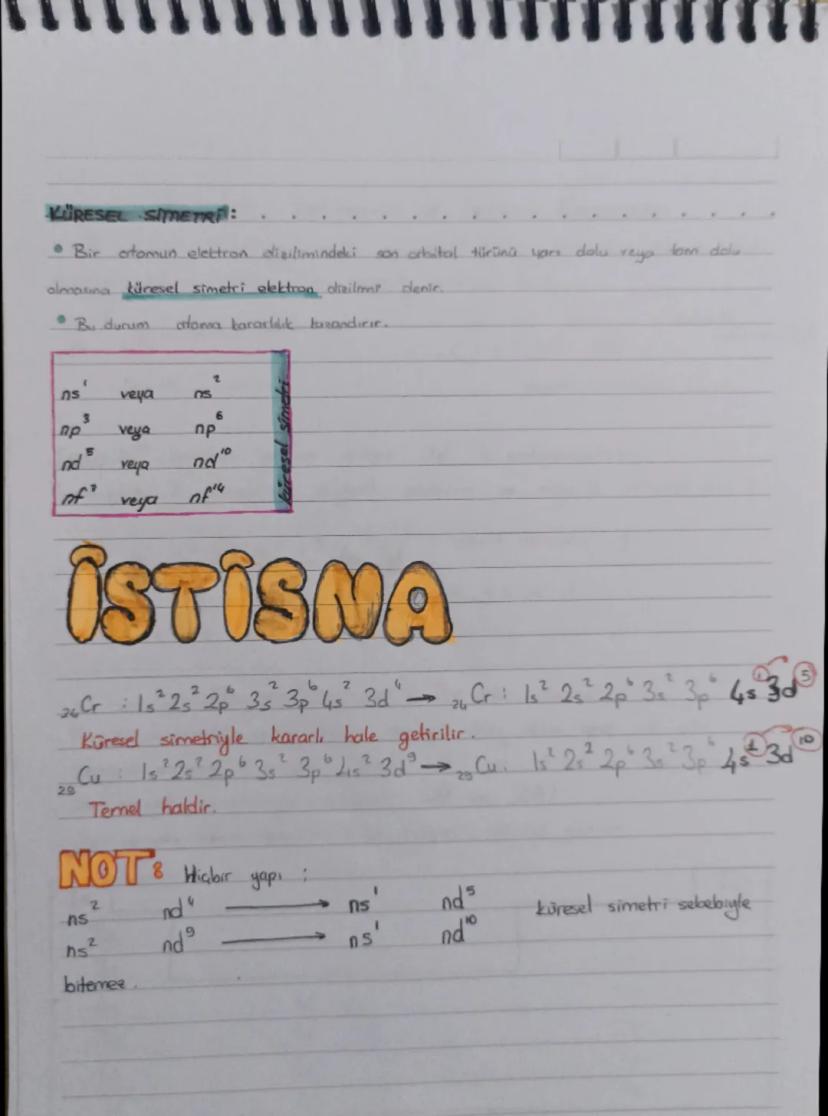 KÜRESEL SİMETRİ:
• Bir atomun elektron dizilimindeki son orbital türünü yarı dolu veya tam dolu
olmasına küresel simetri elektron dizilimi denir.
• Bu durum atoma kararlılık kazandırır.
ns¹ veya ns²
np³ veya np⁶
nd⁵ veya nd¹⁰
nf⁷ veya nf¹⁴
küresel simetri
İSTİSNA
₂₄Cr : 1s² 2s² 2p⁶ 3s² 3p⁶ 4s² 3d⁴ → ₂₄Cr : 1s² 2s² 2p⁶ 3s² 3p⁶ 4s¹ 3d⁵
Küresel simetriyle kararlı hale getirilir.
₂₉Cu : 1s² 2s² 2p⁶ 3s² 3p⁶ 4s² 3d⁹ → ₂₉Cu: 1s² 2s² 2p⁶ 3s² 3p⁶ 4s¹ 3d¹⁰
Temel haldir.
NOT: Hiçbir yapı :
ns² nd⁴ → ns¹ nd⁵ küresel simetri sebebiyle
ns² nd⁹ → ns¹ nd¹⁰
bitemez.